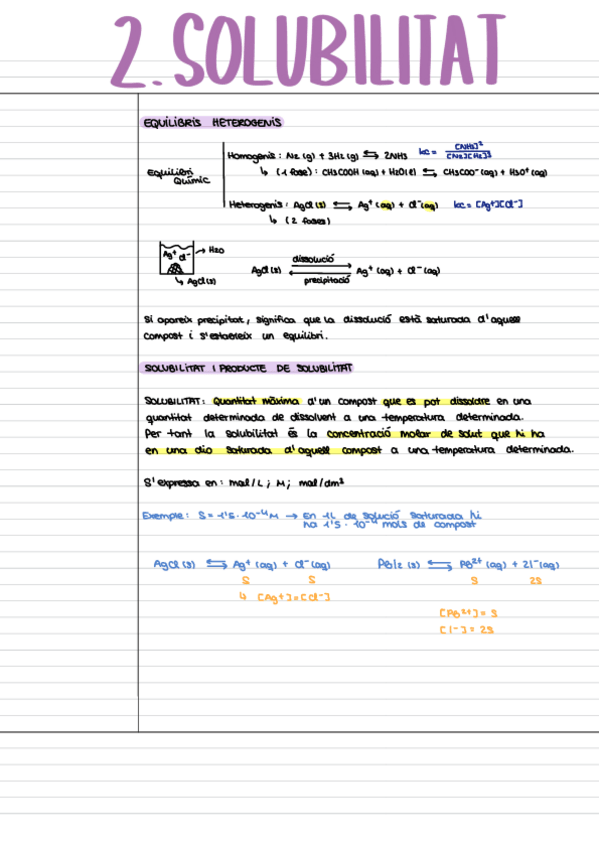 2. SOLUBILITAT
EQUILIBRIS HETEROGENIS
Equilibri Químic
Homogenis: N₂ (g) + 3H₂ (g) ⇆ 2NH₃ Kc = [NH₃]² / [N₂][H₂]³
↳ (1 fase): CH₃COOH (aq) + H₂O(l) ⇆ CH₃COO⁻ (aq) + H₃O⁺ (aq)
Heterogenis: AgCl (s) ⇆ Ag⁺ (aq) + Cl⁻ (aq) Kc = [Ag⁺][Cl⁻]
↳ (2 fases)
Ag⁺ Cl⁻ → H₂O
↳ AgCl (s)
dissolució
AgCl (s) ⇄ Ag⁺ (aq) + Cl⁻ (aq)
precipitació
Si apareix precipitat, significa que la dissolució està saturada d'aquell
compost i s'estableix un equilibri.
SOLUBILITAT I PRODUCTE DE SOLUBILITAT
SOLUBILITAT: Quantitat màxima d'un compost que es pot dissoldre en una
quantitat determinada de dissolvent a una temperatura determinada.
Per tant la solubilitat és la concentració molar de solut que hi ha
en una dio saturada d'aquell compost a una temperatura determinada.
S'expressa en: mol/L ; M ; mol/dm³
Exemple: S = 1'5 · 10⁻⁴ M → En 1L de solució saturada hi
ha 1'5 · 10⁻⁴ mols de compost
AgCl (s) ⇆ Ag⁺ (aq) + Cl⁻ (aq) PbI₂ (s) ⇆ Pb²⁺ (aq) + 2I⁻ (aq)
S S S 2S
↳ [Ag⁺] = [Cl⁻]
[Pb²⁺] = S
[I⁻] = 2S